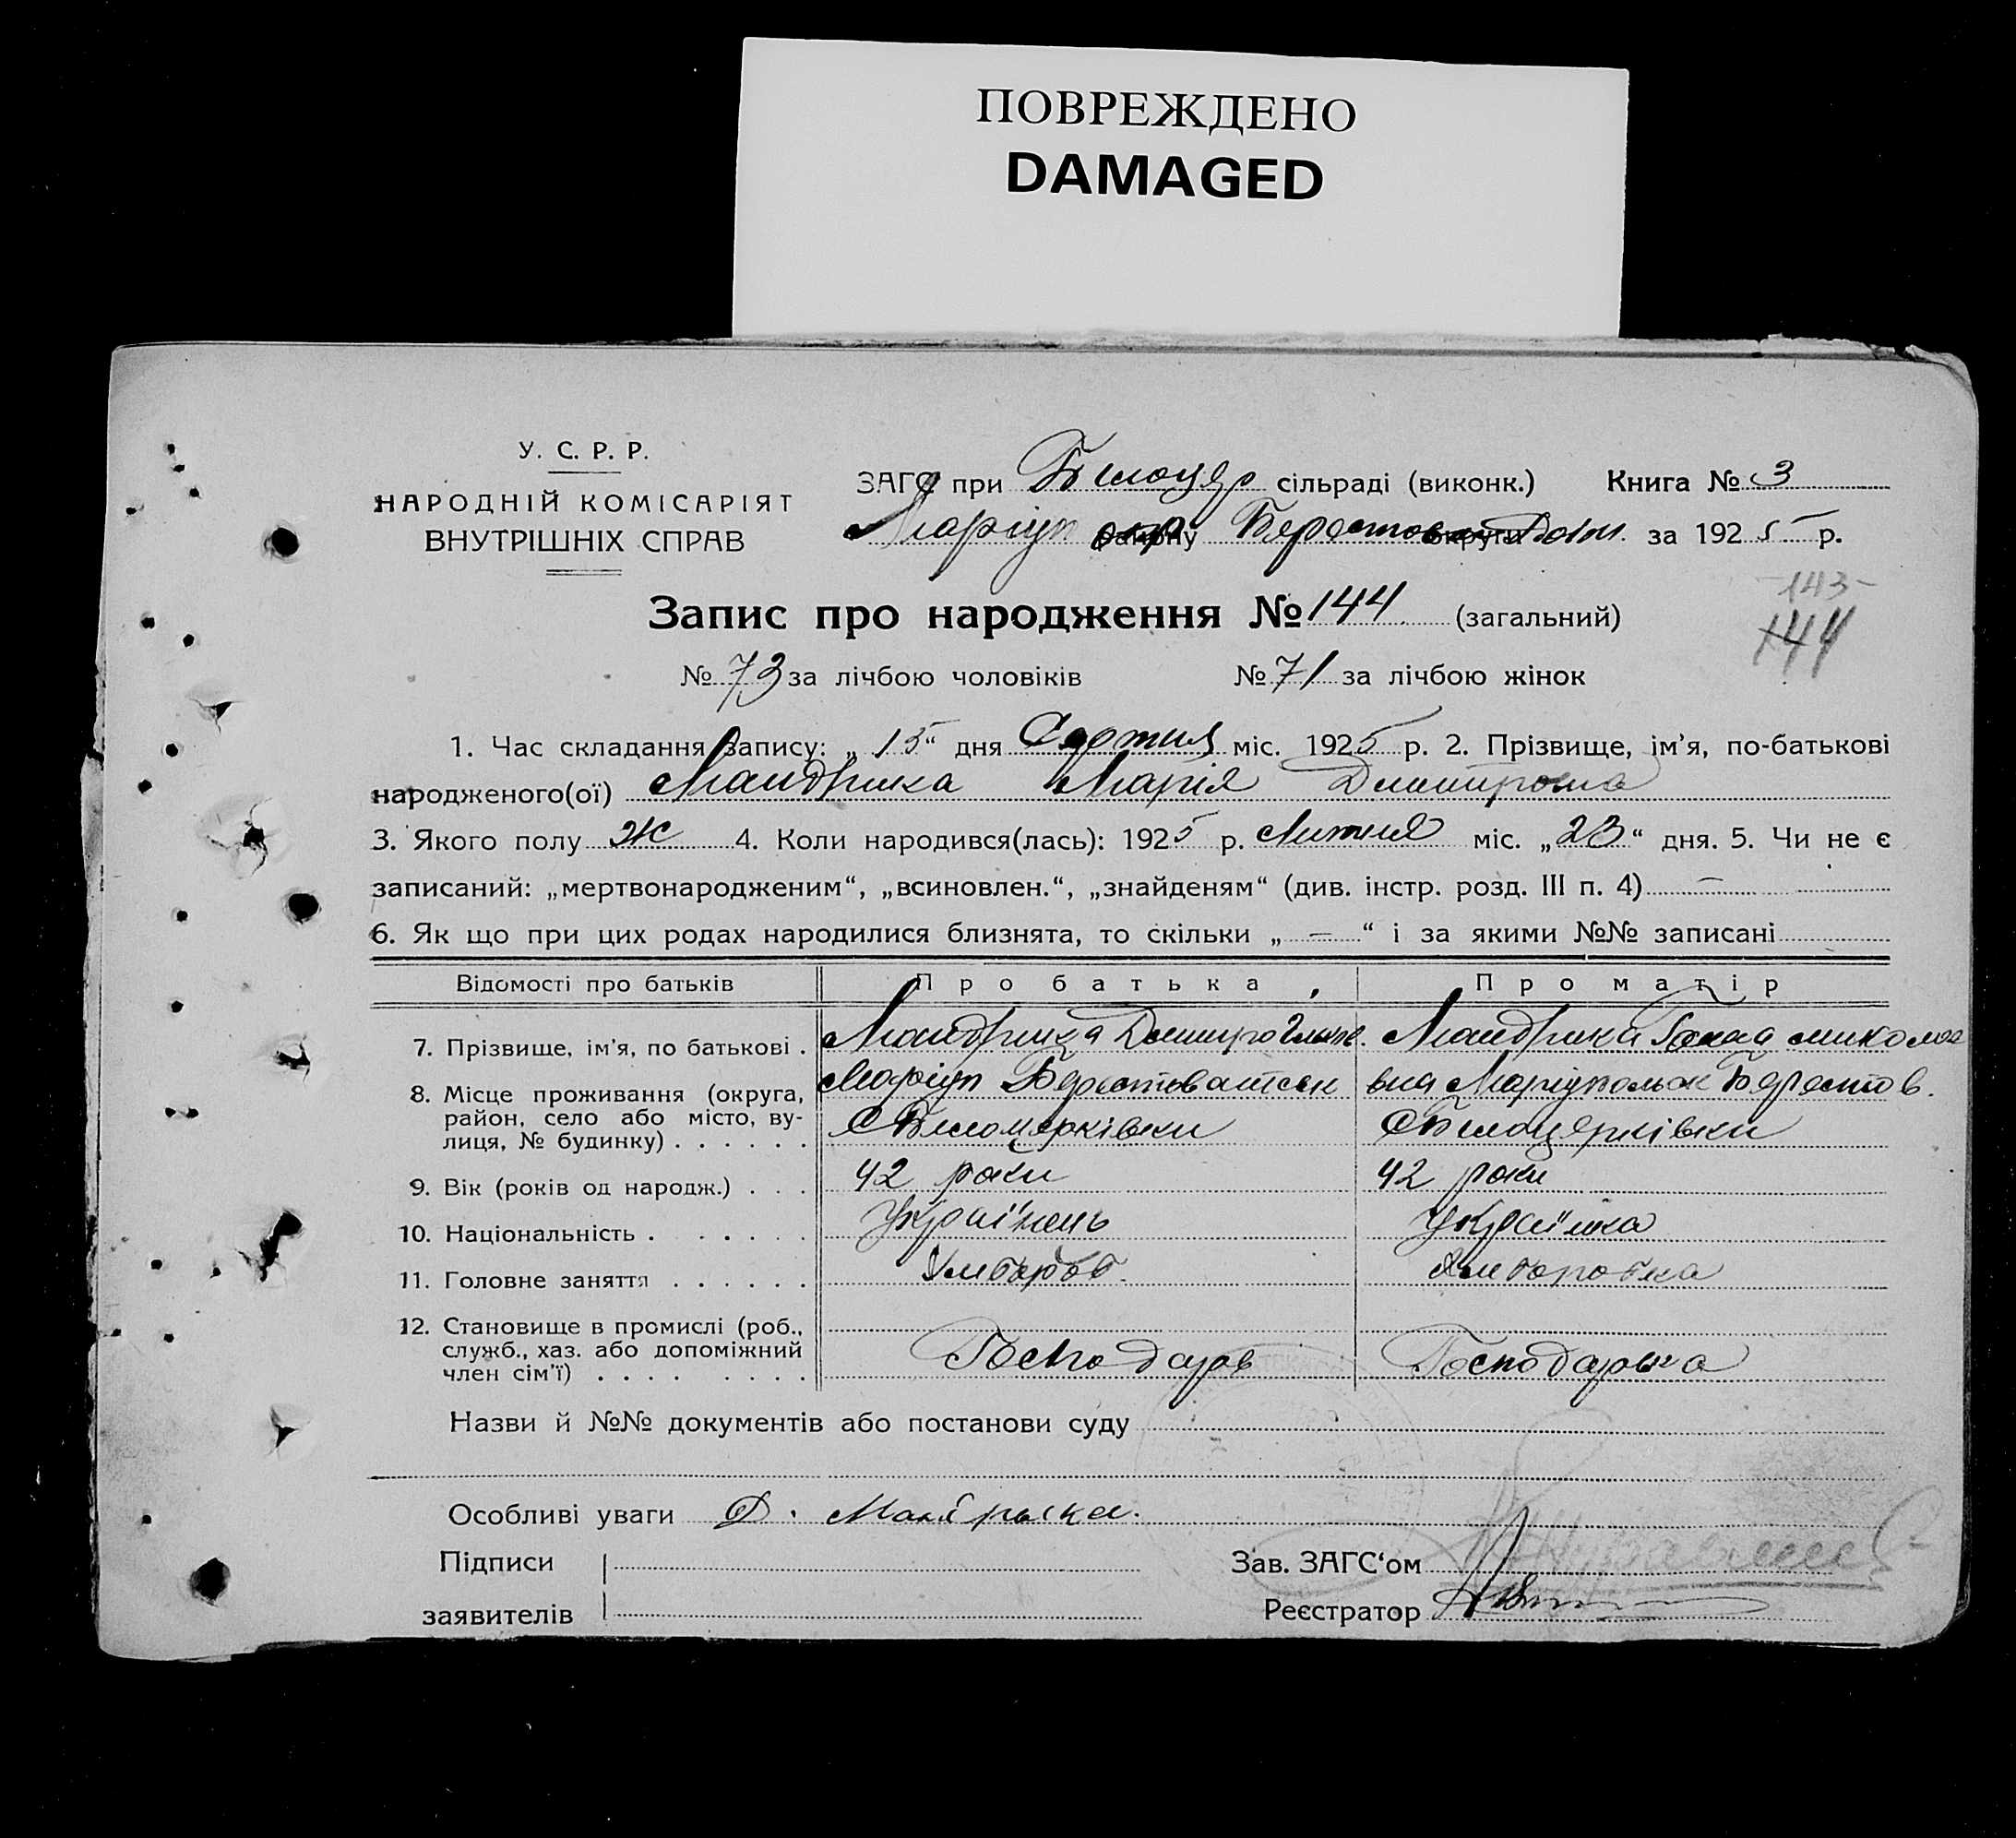 ПОВРЕЖДЕНО
DAMAGED
У. С. Р. Р.
НАРОДНІЙ КОМІСАРІЯТ
ВНУТРІШНІХ СПРАВ
ЗАГС при Білоцер сільраді (виконк.) Книга № 3
Маріуп окр району Берестов округи за 1925 р.
-143-
Запис про народження № 144 (загальний)
144
№ 73 за лічбою чоловіків № 71 за лічбою жінок
1. Час складання запису: „ 15 “ дня міс. 1925 р. 2. Прізвище, ім'я, по-батькові
народженого(ої) Мандрика Марія
3. Якого полу Ж 4. Коли народився(лась): 1925 р. Липня міс. „23“ дня. 5. Чи не є
записаний: „мертвонародженим“, „всиновлен.“, „знайденям“ (див. інстр. розд. III п. 4) —
6. Як що при цих родах народилися близнята, то скільки „ — “ і за якими №№ записані
Відомості про батьків Про батька Про матір
7. Прізвище, ім'я, по батькові . Мандрика Дмитро Мандрика Ганна миколає
8. Місце проживання (округа, Маріуп вна Берестов.
район, село або місто, ву-
лиця, № будинку) . . . . . . С Білоцерківки С Білоцерківки
9. Вік (років од народж.) . . . 42 роки 42 роки
10. Національність . . . . . . Українець Українка
11. Головне заняття . . . . . . Хлібороб Хлеборобка
12. Становище в промислі (роб.,
служб., хаз. або допоміжний
член сім'ї) . . . . . . . . Господарь Господарька
Назви й №№ документів або постанови суду
Особливі уваги Д. Мандрыка.
Підписи
заявителів
Зав. ЗАГС‘ом
Реєстратор